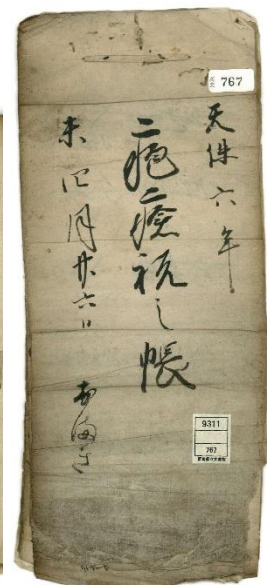 767
天保六年
疱瘡祝之帳
未四月廿六日
9311
767